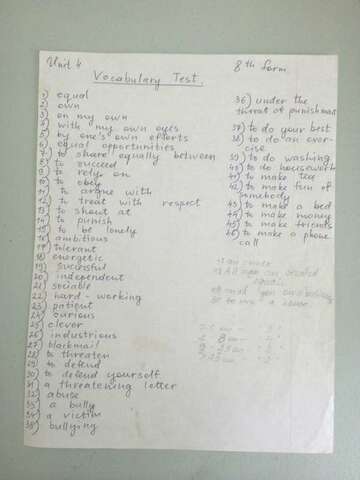 Unit 4
8th form
Vocabulary Test.
1) equal
2) own
3) on my own
4) with my own eyes
5) by one's own efforts
6) equal opportunities
7) to share equally between
8) to succeed
9) to rely on
10) to obey
11) to argue with
12) to treat with respect
13) to shout at
14) to punish
15) to be lonely
16) ambitious
17) tolerant
18) energetic
19) successful
20) independent
21) sociable
22) hard-working
23) patient
24) curious
25) clever
26) industrious
27) blackmail
28) to threaten
29) to defend
30) to defend yourself
31) a threatening letter
32) abuse
33) a bully
34) a victim
35) bullying
36) under the
threat of punishment
37) to do your best
38) to do an exer-
cise
39) to do washing
40) to do housework
41) to make tea
42) to make fun of
somebody
43) to make a bed
44) to make money
45) to make friends
46) to make a phone
call
All men are created
equal